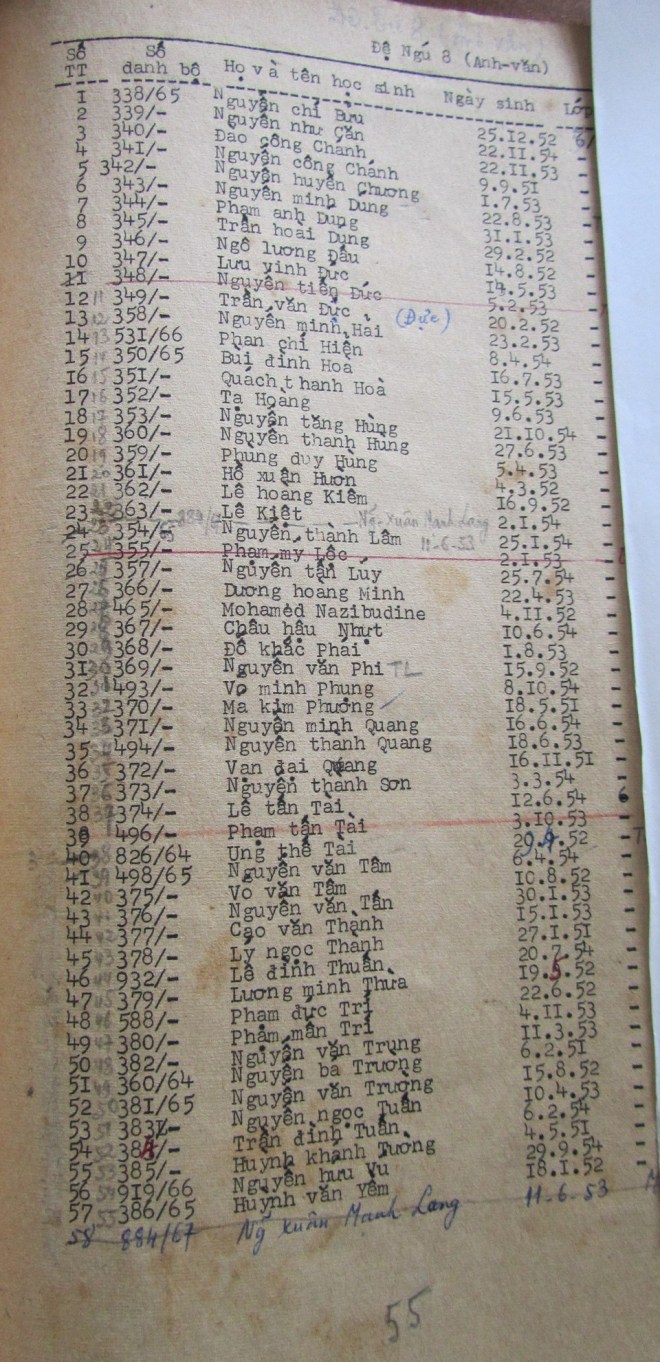 Đệ Ngũ 8 (Anh-văn)
Số TT Số danh bộ Họ và tên học sinh Ngày sinh Lớp
1 338/65 Nguyễn chí Bửu 25.12.52 6/
2 339/- Nguyễn như Cẩn 22.11.54 -
3 340/- Đào công Chánh 22.11.53 -
4 341/- Nguyễn công Chánh 9.9.51 -
5 342/- Nguyễn huyền Chương 1.7.53 -
6 343/- Nguyễn minh Dũng 22.8.53 -
7 344/- Phạm anh Dũng 31.1.53 -
8 345/- Trần hoài Dũng 29.2.52 -
9 346/- Ngô lương Đẩu 14.8.52 -
10 347/- Lưu vinh Đức 14.5.53 -
11 348/- Nguyễn tiến Đức 5.2.53 -
12 11 349/- Trần văn Đức (Đực) 20.2.52 -
13 12 358/- Nguyễn minh Hải 23.2.53 -
14 13 531/66 Phan chí Hiền 8.4.54 -
15 14 350/65 Bùi đình Hòa 16.7.53 -
16 15 351/- Quách thanh Hoà 15.5.53 -
17 16 352/- Tạ Hoàng 9.6.53 -
18 17 353/- Nguyễn tăng Hùng 21.10.54 -
19 18 360/- Nguyễn thanh Hùng 27.6.53 -
20 19 359/- Phùng duy Hùng 5.4.53 -
21 20 361/- Hồ xuân Hườn 4.3.52 -
22 21 362/- Lê hoàng Kiếm 16.9.52 -
23 363/- Lê Kiệt 2.1.54 -
884/6 Ng̃ Xuân Mạnh Lang 11-6-53
24 354/65 Nguyễn thành Lâm 25.1.54 -
25 355/- Phạm mỹ Lộc 2.1.53 -
26 357/- Nguyễn tấn Lũy 25.7.54 -
27 366/- Dương hoàng Minh 22.4.53 -
28 465/- Mohamed Nazibudine 4.11.52 -
29 367/- Châu hậu Nhựt 10.6.54 -
30 368/- Đỗ khắc Phai 1.8.53 -
31 369/- Nguyễn văn Phi TL 15.9.52 -
32 493/- Võ minh Phụng 8.10.54 -
33 370/- Ma kim Phương 18.5.51 -
34 371/- Nguyễn minh Quang 16.6.54 -
35 494/- Nguyễn thanh Quang 18.6.53 -
36 372/- Văn đại Quang 16.11.51 -
37 373/- Nguyễn thanh Sơn 3.3.54 -
38 374/- Lê tấn Tài 12.6.54 6
39 496/- Phạm tấn Tài 3.10.53 -
40 826/64 Ung thế Tài 29.9.52
41 498/65 Nguyễn văn Tâm 6.4.54 -
42 375/- Võ văn Tâm 10.8.52 -
43 376/- Nguyễn văn Tấn 30.1.53 -
44 377/- Cao văn Thành 15.1.53 -
45 378/- Lý ngọc Thạnh 27.1.51 -
46 932/- Lê đình Thuận 20.7.54 -
47 379/- Lương minh Thừa 19.5.52 -
48 588/- Phạm đức Trí 22.6.52 -
49 380/- Phạm mẫn Trí 4.11.53 -
50 382/- Nguyễn văn Trung 11.3.53 -
51 360/64 Nguyễn bá Trương 6.2.51 -
52 381/65 Nguyễn văn Trượng 15.8.52 -
53 383/- Nguyễn ngọc Tuấn 10.4.53 -
54 384/- Trần đình Tuấn 6.2.54 -
55 385/- Huỳnh khánh Tường 4.5.51 -
56 919/66 Nguyễn hữu Vũ 29.9.54 -
57 386/65 Huỳnh văn Yểm 18.1.52 -
58 884/67 Ng̃ Xuân Mạnh Lang 11-6-53
55